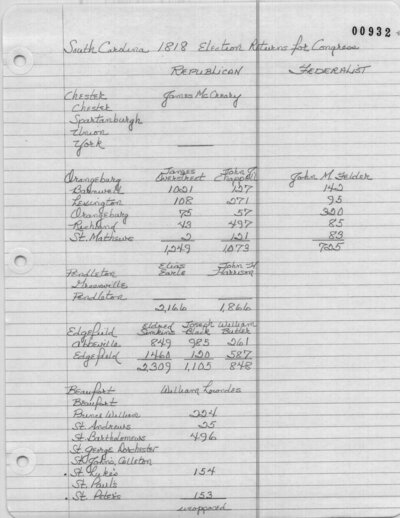 00932
South Carolina 1818 Election Returns for Congress
REPUBLICAN FEDERALIST
Chester James McCreary
Chester
Spartanburgh
Union
York
Orangeburg James Overstreet John J. Chappell John M. Felder
Barnwell 1021 127 142
Lexington 108 271 95
Orangeburg 75 57 300
Richland 43 497 85
St. Matthews 2 121 83
1,249 1073 705
Pendleton Elias Earle John H. Harrison
Greenville
Pendleton
2,166 1,866
Edgefield Eldred Simkins Joseph Black William Butler
Abbeville 849 985 261
Edgefield 1460 120 587
2,309 1,105 848
Beaufort William Lowndes
Beaufort
Prince William 224
St. Andrews 25
St. Bartholomews 496
St. George, Dorchester
St. Johns, Colleton
St. Lukes 154
St. Pauls
St. Peters 153
unopposed